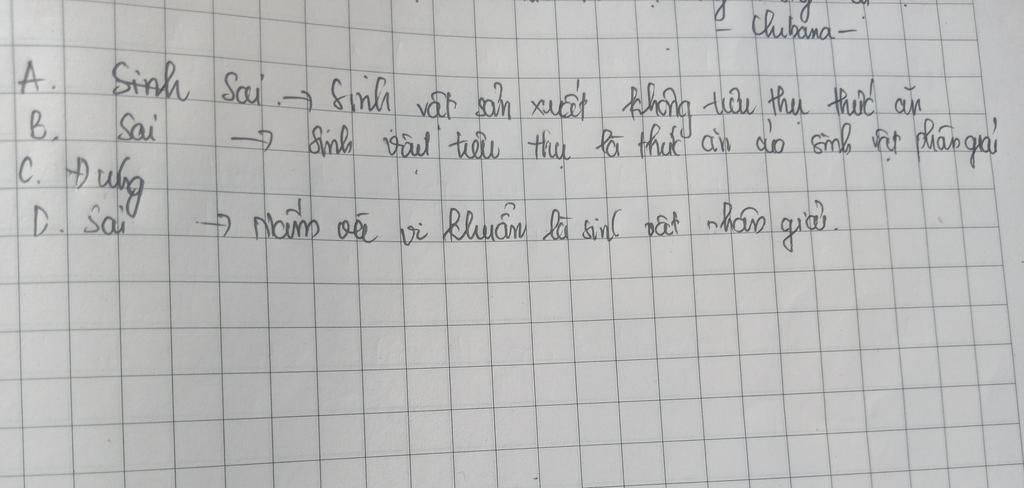 - Chibana -
A. Sinh Sai. → Sinh vật sản xuất không tiêu thụ thức ăn
B. Sai → Sinh vật tiêu thụ là thức ăn cho sinh vật phân giải
C. Đúng
D. Sai → nấm và vi khuẩn là sinh vật phân giải.